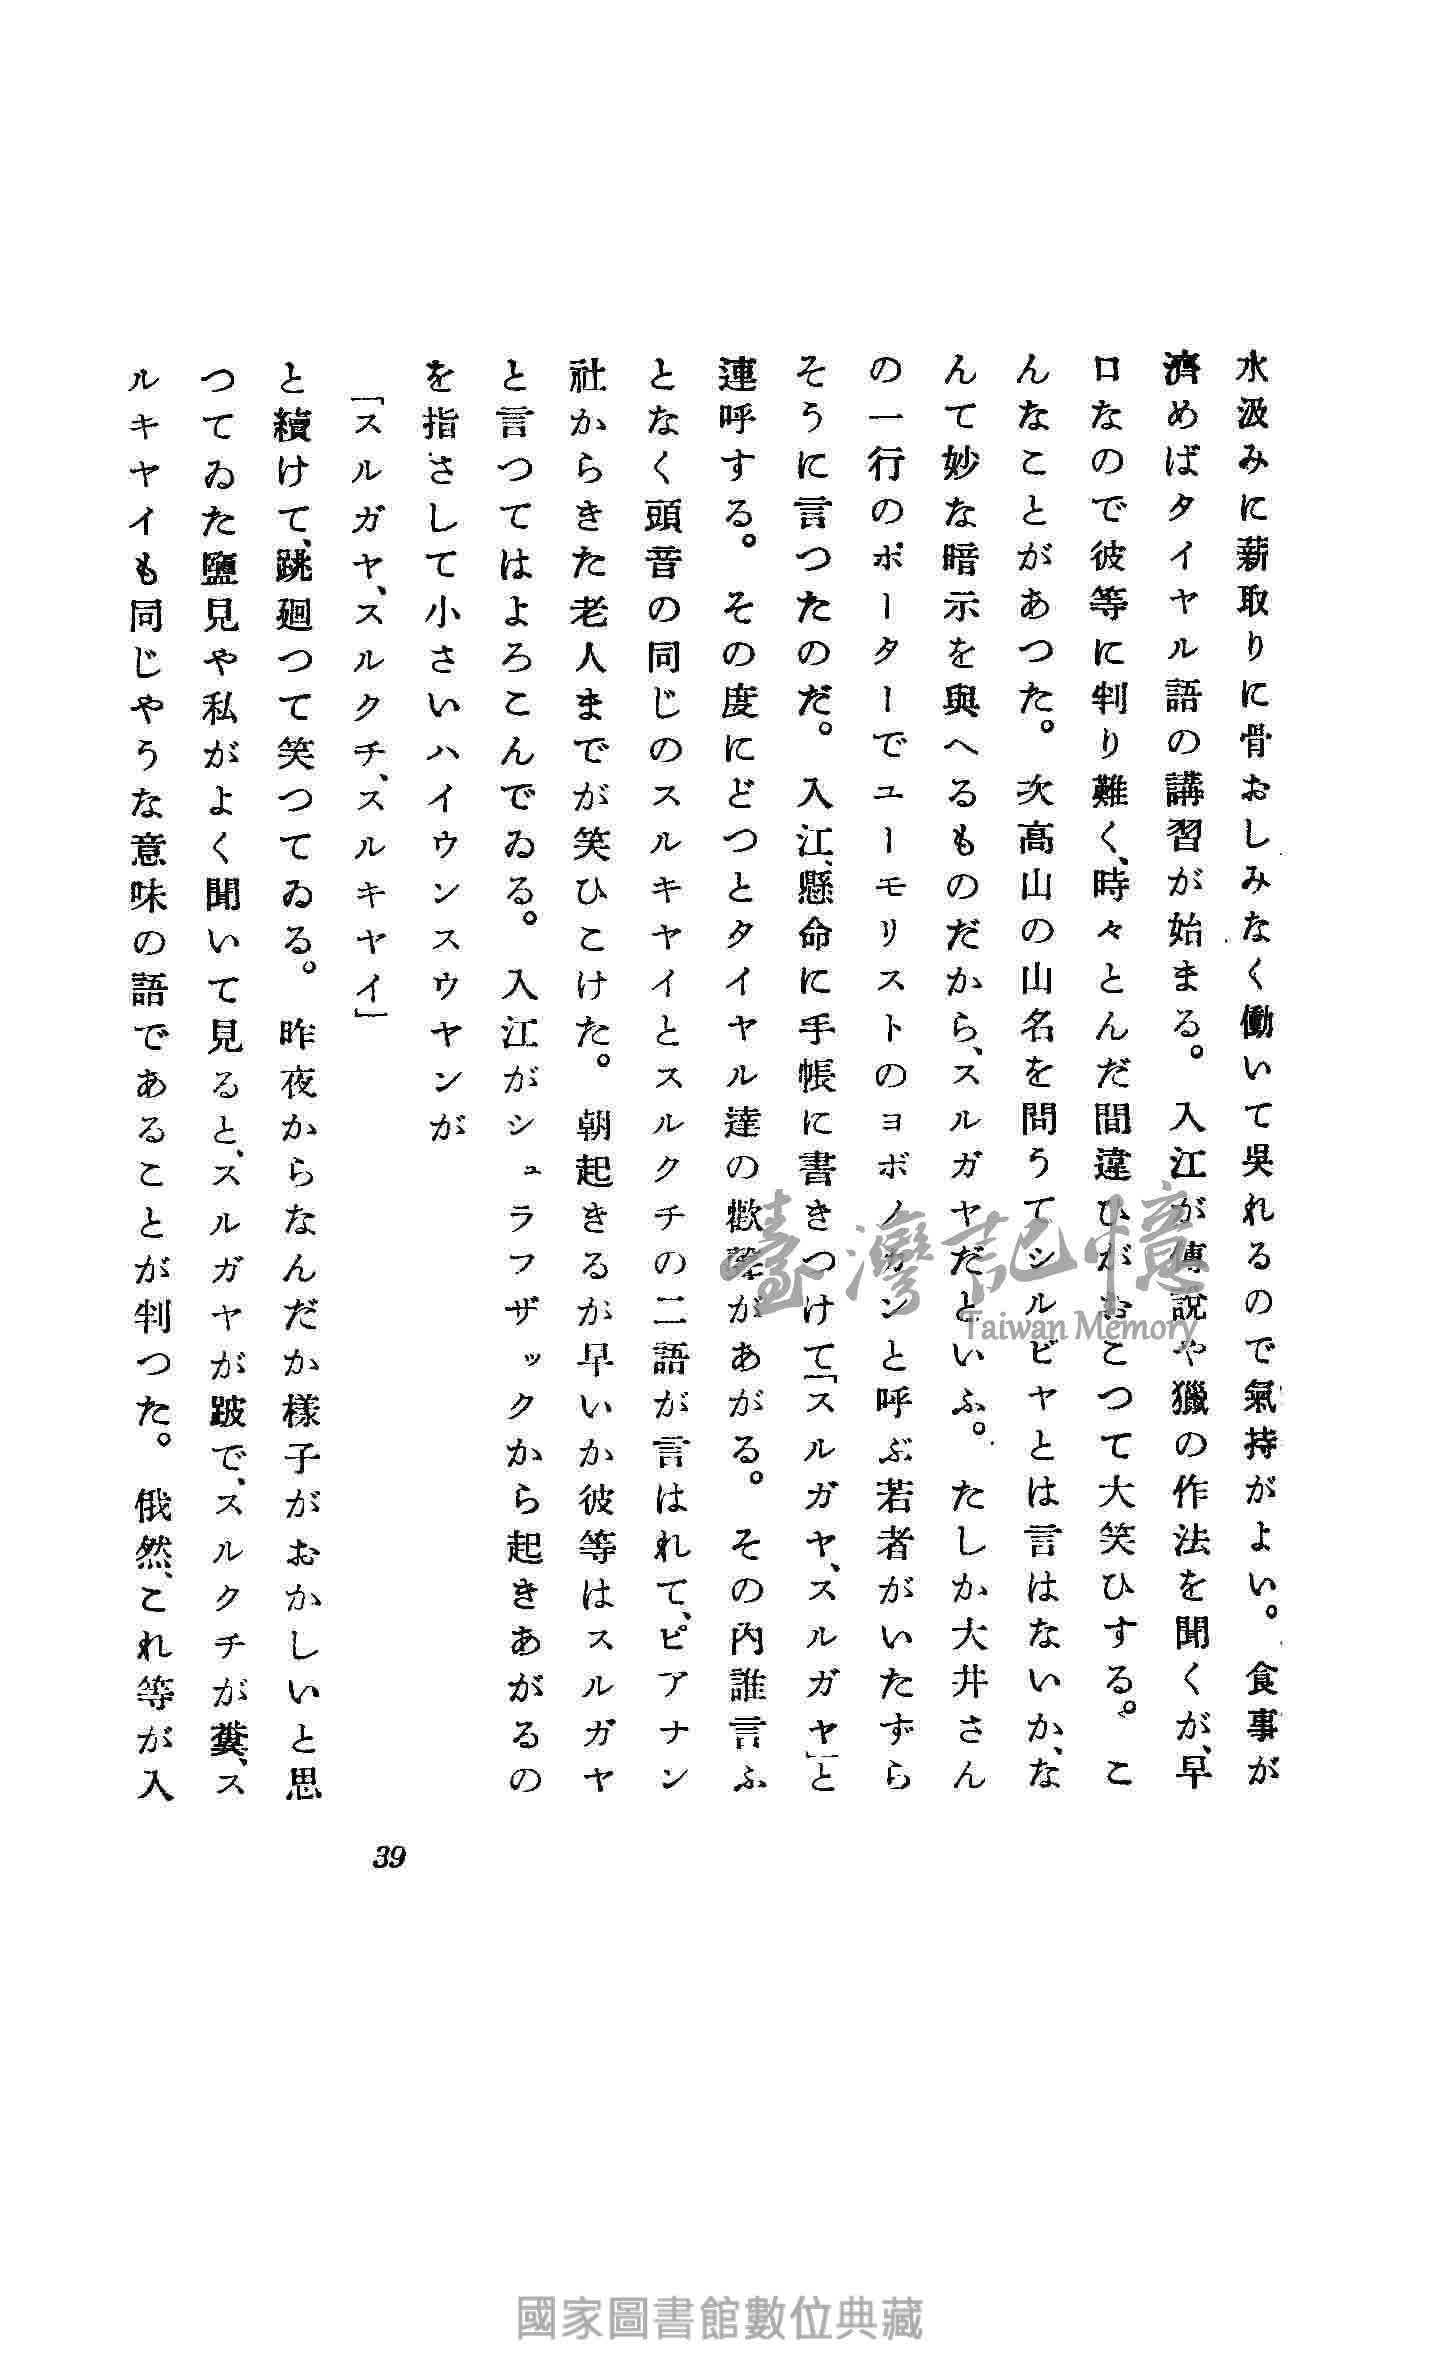 水汲みに薪取りに骨おしみなく働いて呉れるので氣持がよい。食事が
濟めばタイヤル語の講習が始まる。入江が傳説や獵の作法を聞くが、早
口なので彼等に判り難く、時々とんだ間違ひがおこつて大笑ひする。こ
んなことがあつた。次高山の山名を問うてシルビヤとは言はないか、な
んて妙な暗示を與へるものだから、スルガヤだといふ。たしか大井さん
の一行のポーターでユーモリストのヨボノカンと呼ぶ若者がいたずら
そうに言つたのだ。入江、懸命に手帳に書きつけて「スルガヤ、スルガヤ」と
連呼する。その度にどつとタイヤル達の歡聲があがる。その内誰言ふ
となく頭音の同じのスルキヤイとスルクチの二語が言はれて、ピアナン
社からきた老人までが笑ひこけた。朝起きるが早いか彼等はスルガヤ
と言つてはよろこんでゐる。入江がシュラフザックから起きあがるの
を指さして小さいハイウンスウヤンが
「スルガヤ、スルクチ、スルキヤイ」
と續けて、跳廻つて笑つてゐる。昨夜からなんだか樣子がおかしいと思
つてゐた鹽見や私がよく聞いて見ると、スルガヤが跛で、スルクチが糞、ス
ルキヤイも同じやうな意味の語であることが判つた。俄然、これ等が入
39
臺灣記憶
Taiwan Memory
國家圖書館數位典藏